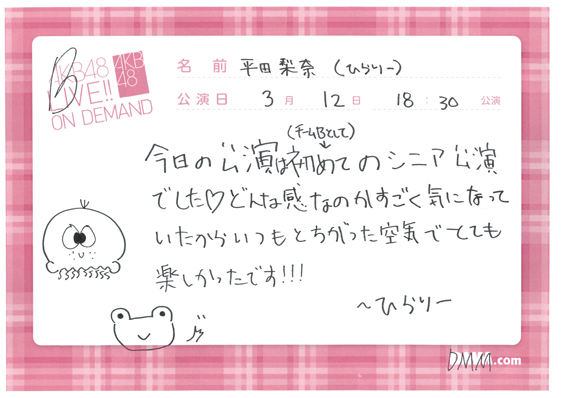 AKB48
LIVE!!
ON DEMAND
B
AKB
48
名 前 平田梨奈 (ひらりー)
公演日 3月 12日 18:30 公演
(チームBとして)
今日の公演は初めてのシニア公演
でした♡どんな感なのかすごく気になって
いたからいつもとちがった空気でとても
楽しかったです!!!
〜ひらりー
DMM.com